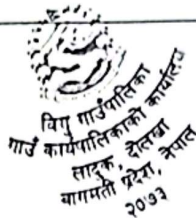 विगु गाउँपालिका
गाउँ कार्यपालिकाको कार्यालय
सादुक, दोलखा
बागमती प्रदेश, नेपाल
२०७३